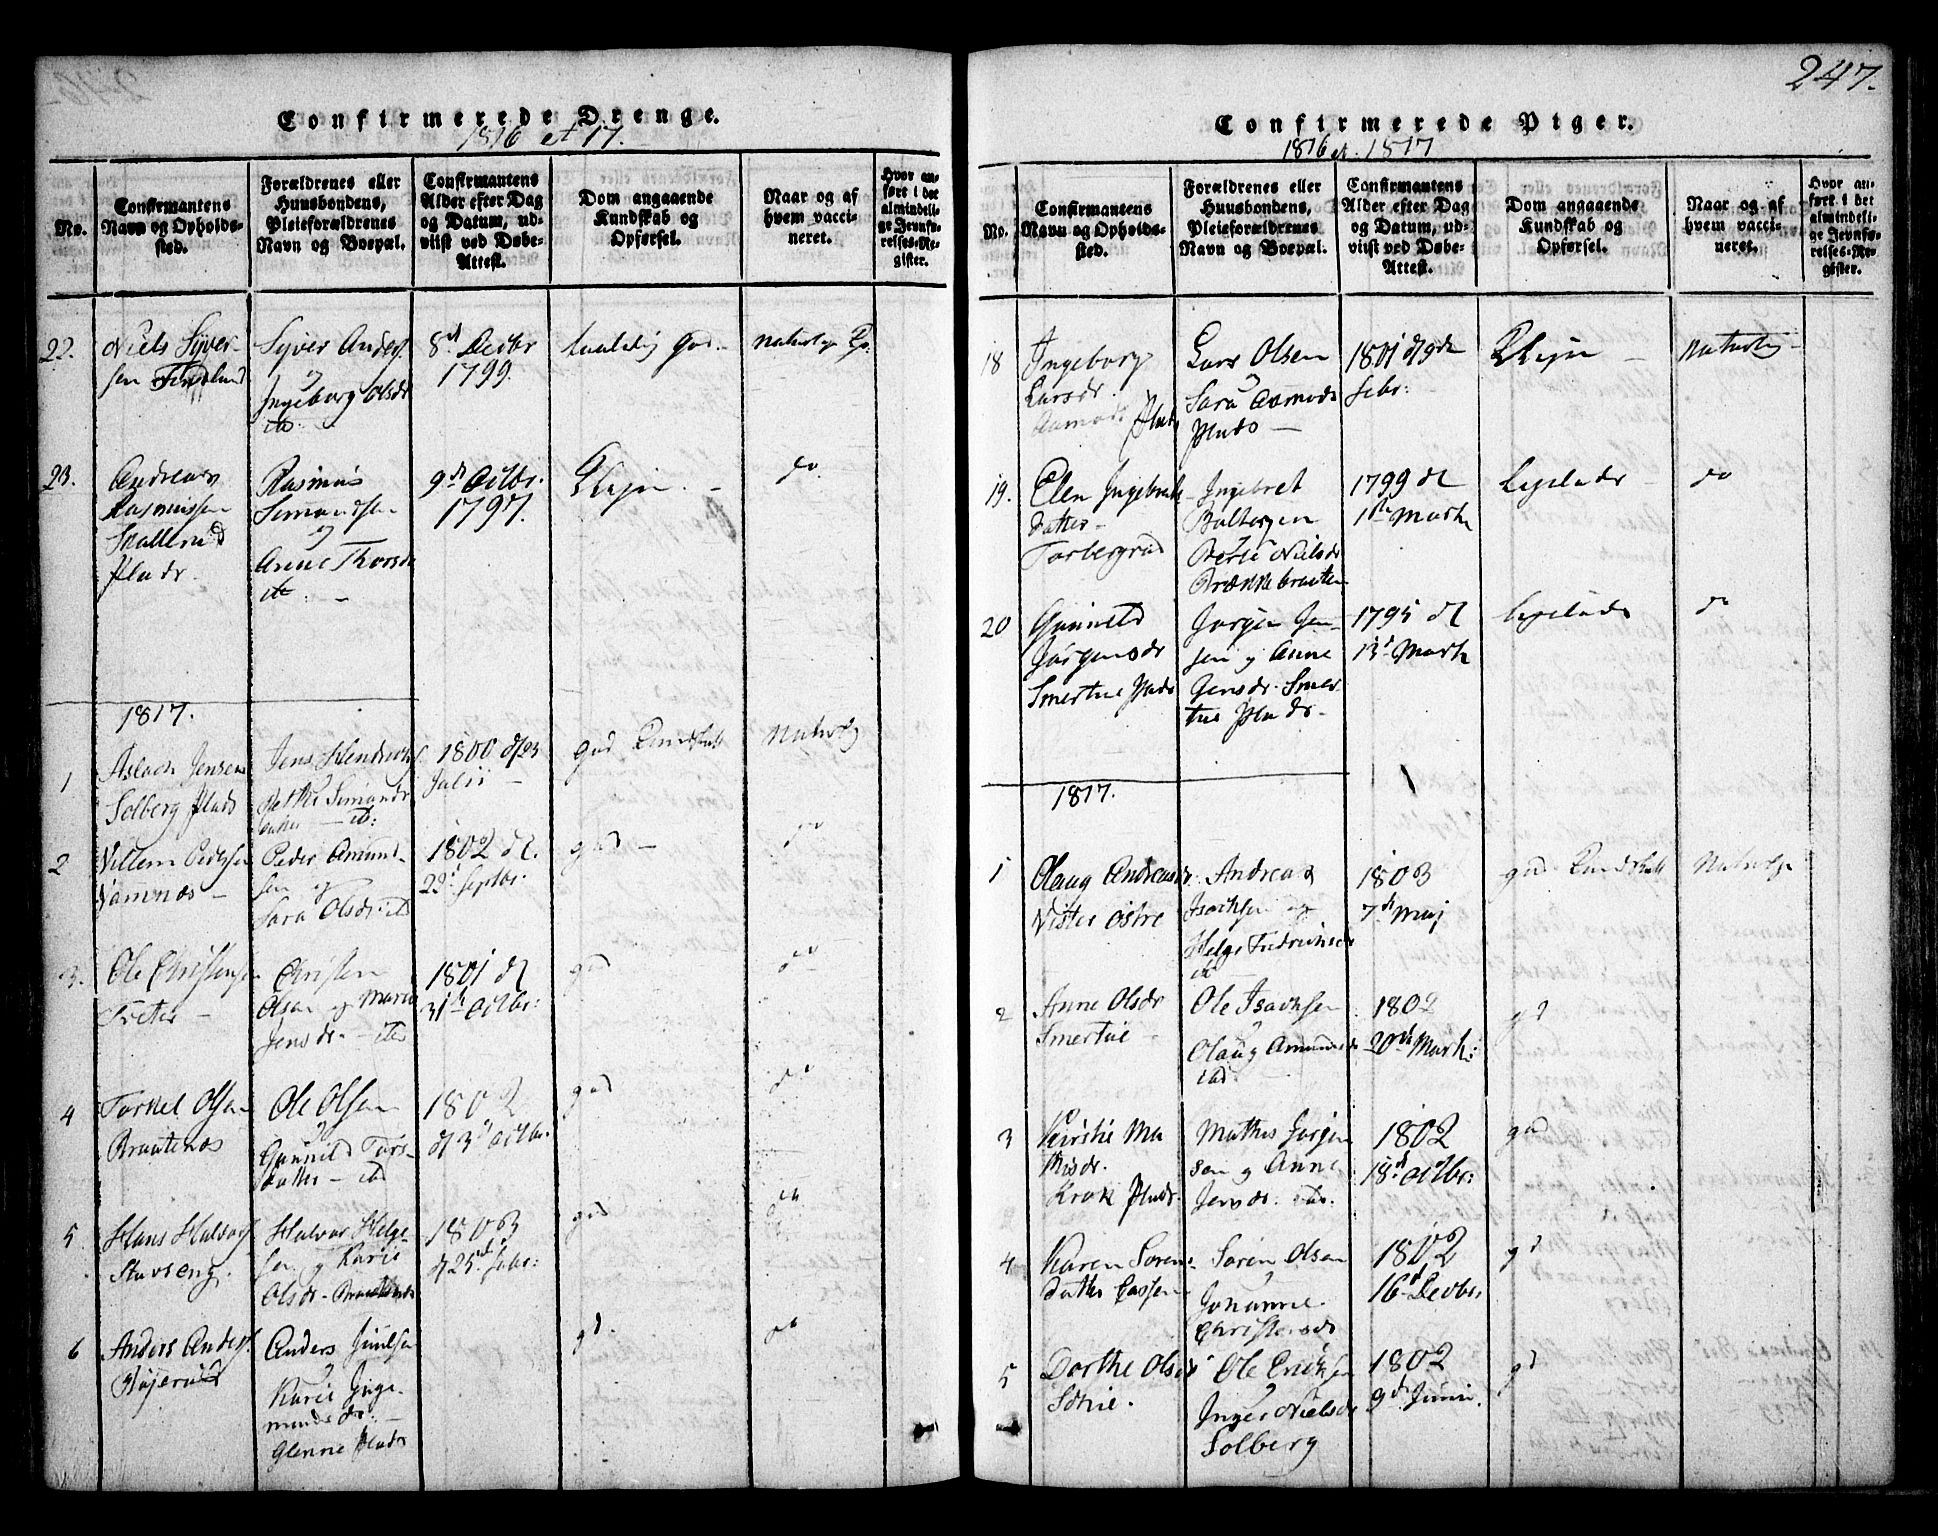 247.
Confirmerede Drenge.
1816 et 17.
No.
Confirmantens Navn og Opholdssted.
Forældrenes eller Huusbondens, Pleieforældrenes Navn og Boepæl.
Confirmantens Alder efter Dag og Datum, udviist ved Døbe-Attest.
Dom angaaende Kundskab og Opførsel.
Naar og af hvem vaccineret.
Hvor anført i det almindelige Jevnførelses-Register.
22.
Niels Syver-
sen
Syver Anders.
og
Ingeborg Olsdr
ibd.
8d Decbr
1799.
god
23.
Andreas
Rasmussen
Skullerud
Plads.
Rasmus
Simensen
og
Anne Thorsdr
9d Octbr.
1797.
do
1817.
1
Aslach Jensen
Solberg Plads
Jens Hendrichs.
1800 d 23
Julii
god Kundskab
Naturlig
2
Villem Pedersen
Vamnæs
Peder Amund-
sen og
Sara Olsdr ibd
1802 d.
22d Septbr.
god
do
3.
Ole Christensen
Treter
Christen
Olsen og Maria
Jensdr. ibd
1801 d
31te Octbr:
god
do
4
Torkel Olsen
Braatenæs
Ole Olsen
og
Gunnild Tors-
datter ibd
1802
d 3d Octbr.
god
do
5
Hans Halvors.
Stavseng.
Halvor Helge-
sen og Karie
Olsdr.
1803
d 25d Febr:
god
do
6
Anders Anders.
Bøjerud
Anders Juulsen
og
Karie Inge-
mundsdr:
Glenne Plads
gd.
do
Confirmerede Piger.
1816 et 1817
No.
Confirmantens Navn og Opholdssted.
Forældrenes eller Huusbondens, Pleieforældrenes Navn og Boepæl.
Confirmantens Alder efter Dag og Datum, udviist ved Døbe-Attest.
Dom angaaende Kundskab og Opførsel.
Naar og af hvem vaccineret.
Hvor anført i det almindelige Jevnførelses-Register.
18
Ingeborg
Larsdr.
Aamods Plads
Lars Olsen
og
Sara Aamods
Plads
1801 d 9de
Febr:
Naturlig
19.
Elen Ingebrets
datter
Torbergrud
Ingebret
Berte Nielsdr
Brække braaten
1799 d
1te Marts
Ligeledes
do
20
Gunnild
Jørgensdr
Smertue Plads
Jørgen Jen-
sen og Anne
Jensdr. Smer-
tue Plads.
1795 d
13d Marts
Ligeledes
do
1817.
1
Olaug Andreasdr.
Vister østre
Andreas
Isachsen og
Helge Fredrichsdr
ibd
1803
7d Maj
god Kundskab
Naturlig
2
Anne Olsdr
Smertue
Ole Isachsen
og
Olaug Amundsdr
ibd.
1802
20de Marts:
gd
3
Kirstie Ma
thisdr.
Krok Plads.
Mathis Jørgen
sen og Anne
Jensdr. ibd.
1802
18d Octbr:
god
4
Karen Sørens-
datter
Søren Olsen
og
Johanne
Christensdr
1802
16d Decbr:
gd
5
Dorthe Olsdr
Sønie.
Ole Eriksen
og
Inger Nielsdr
Solberg
1802
9d Junii.
gd